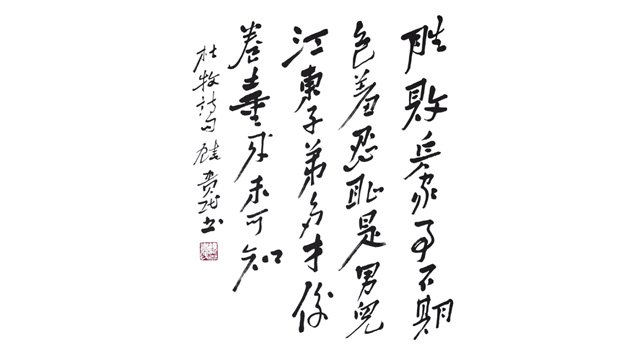 胜敗兵家事不期
包羞忍耻是男兒
江東子弟多才俊
卷土重来未可知
杜牧詩句 貴书